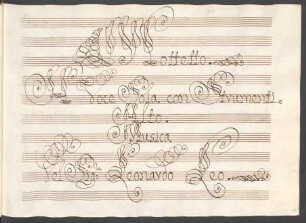 Mottetto.
A Voce Sola con Strumenti.
Alto.
Musica
Del Sig. Leonardo Leo.